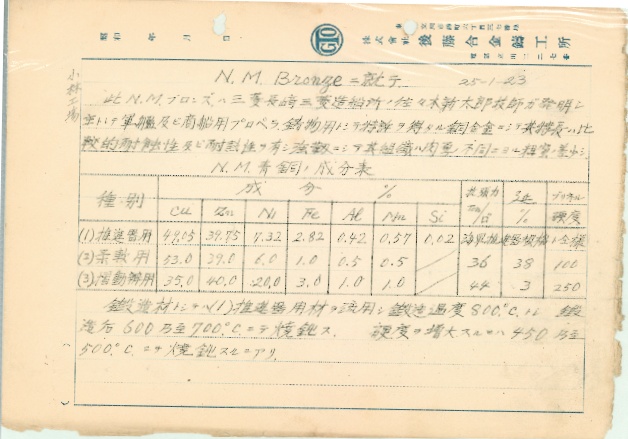 昭和 年 月 日
GTO
株式會社 後藤合金鋳工所
小林工場
N.M. Bronze ニ就テ 25-1-23
此N.M.ブロンズハ三菱長崎三菱造船所ノ佐々木新太郎技師ガ発明シ
主トシテ軍艦及ビ商船用プロペラ鋳物用トシテ特許ヲ得タル銅合金ニシテ其特長ハ比
較的耐蝕性及ビ耐熱性ヲ有シ強靱ニシテ其組織ハ肉厚ノ不同ニヨル粗密ノ差少シ
N.M.青銅ノ成分表
種別 成分 % 抗張力 延 % ブリネル硬度
Cu Zn Ni Fe Al Mn Si
(1)推進器用 49.05 39.75 7.32 2.82 0.42 0.57 0.02
(2)柔軟用 53.0 39.0 6.0 1.0 0.5 0.5 36 38 100
(3)摺動弁用 35.0 40.0 20.0 3.0 1.0 1.0 44 3 250
鍛造材トシテハ(1)推進器用材ヲ流用シ鍛造温度800°C. 鍛
造后600乃至700°C.ニテ焼鈍ス. 硬度ヲ増大スルニハ450乃至
500°C.ニテ焼鈍スルニアリ.